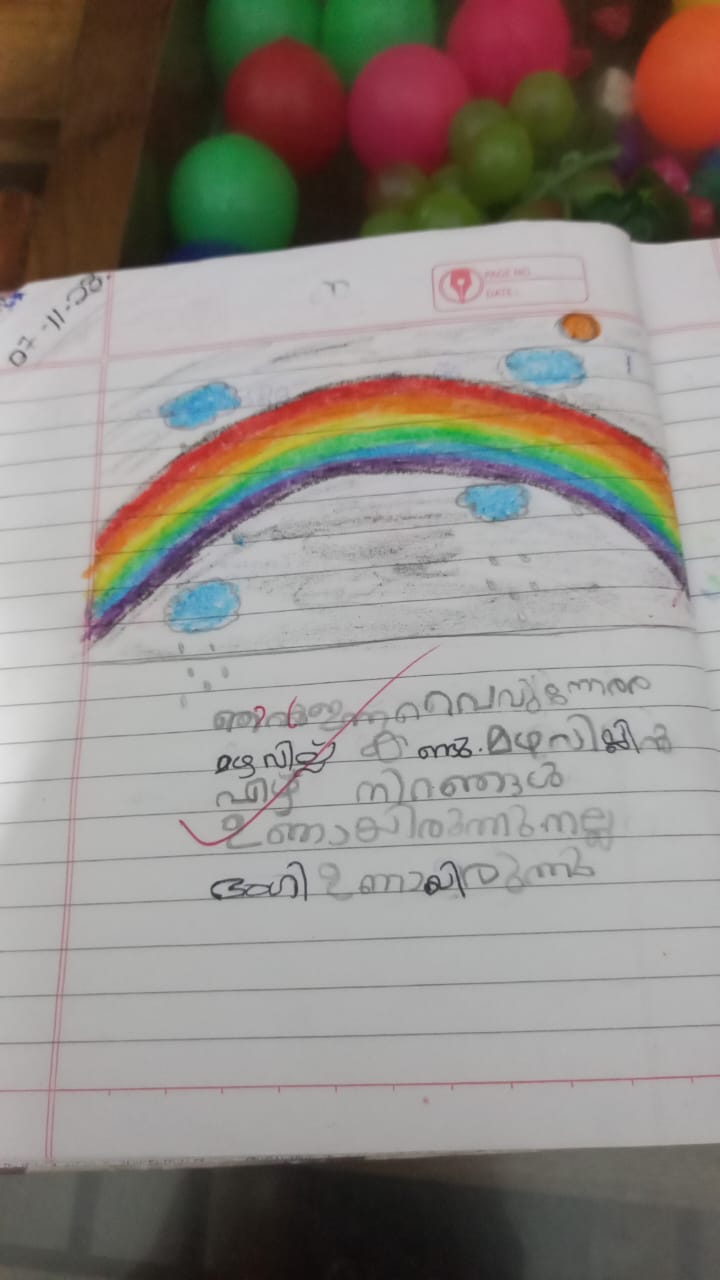 07-11-25.
PAGE NO.
DATE:
ഞാൻ ഇന്ന വൈവുന്നേരം
മഴവില്ല് കണ്ടു. മഴവില്ലിൽ
ഏഴ് നിറഞ്ഞൾ
ഉണ്ടായിരുന്നു നല്ല
ഭംഗി ഉണ്ടായിരുന്നു